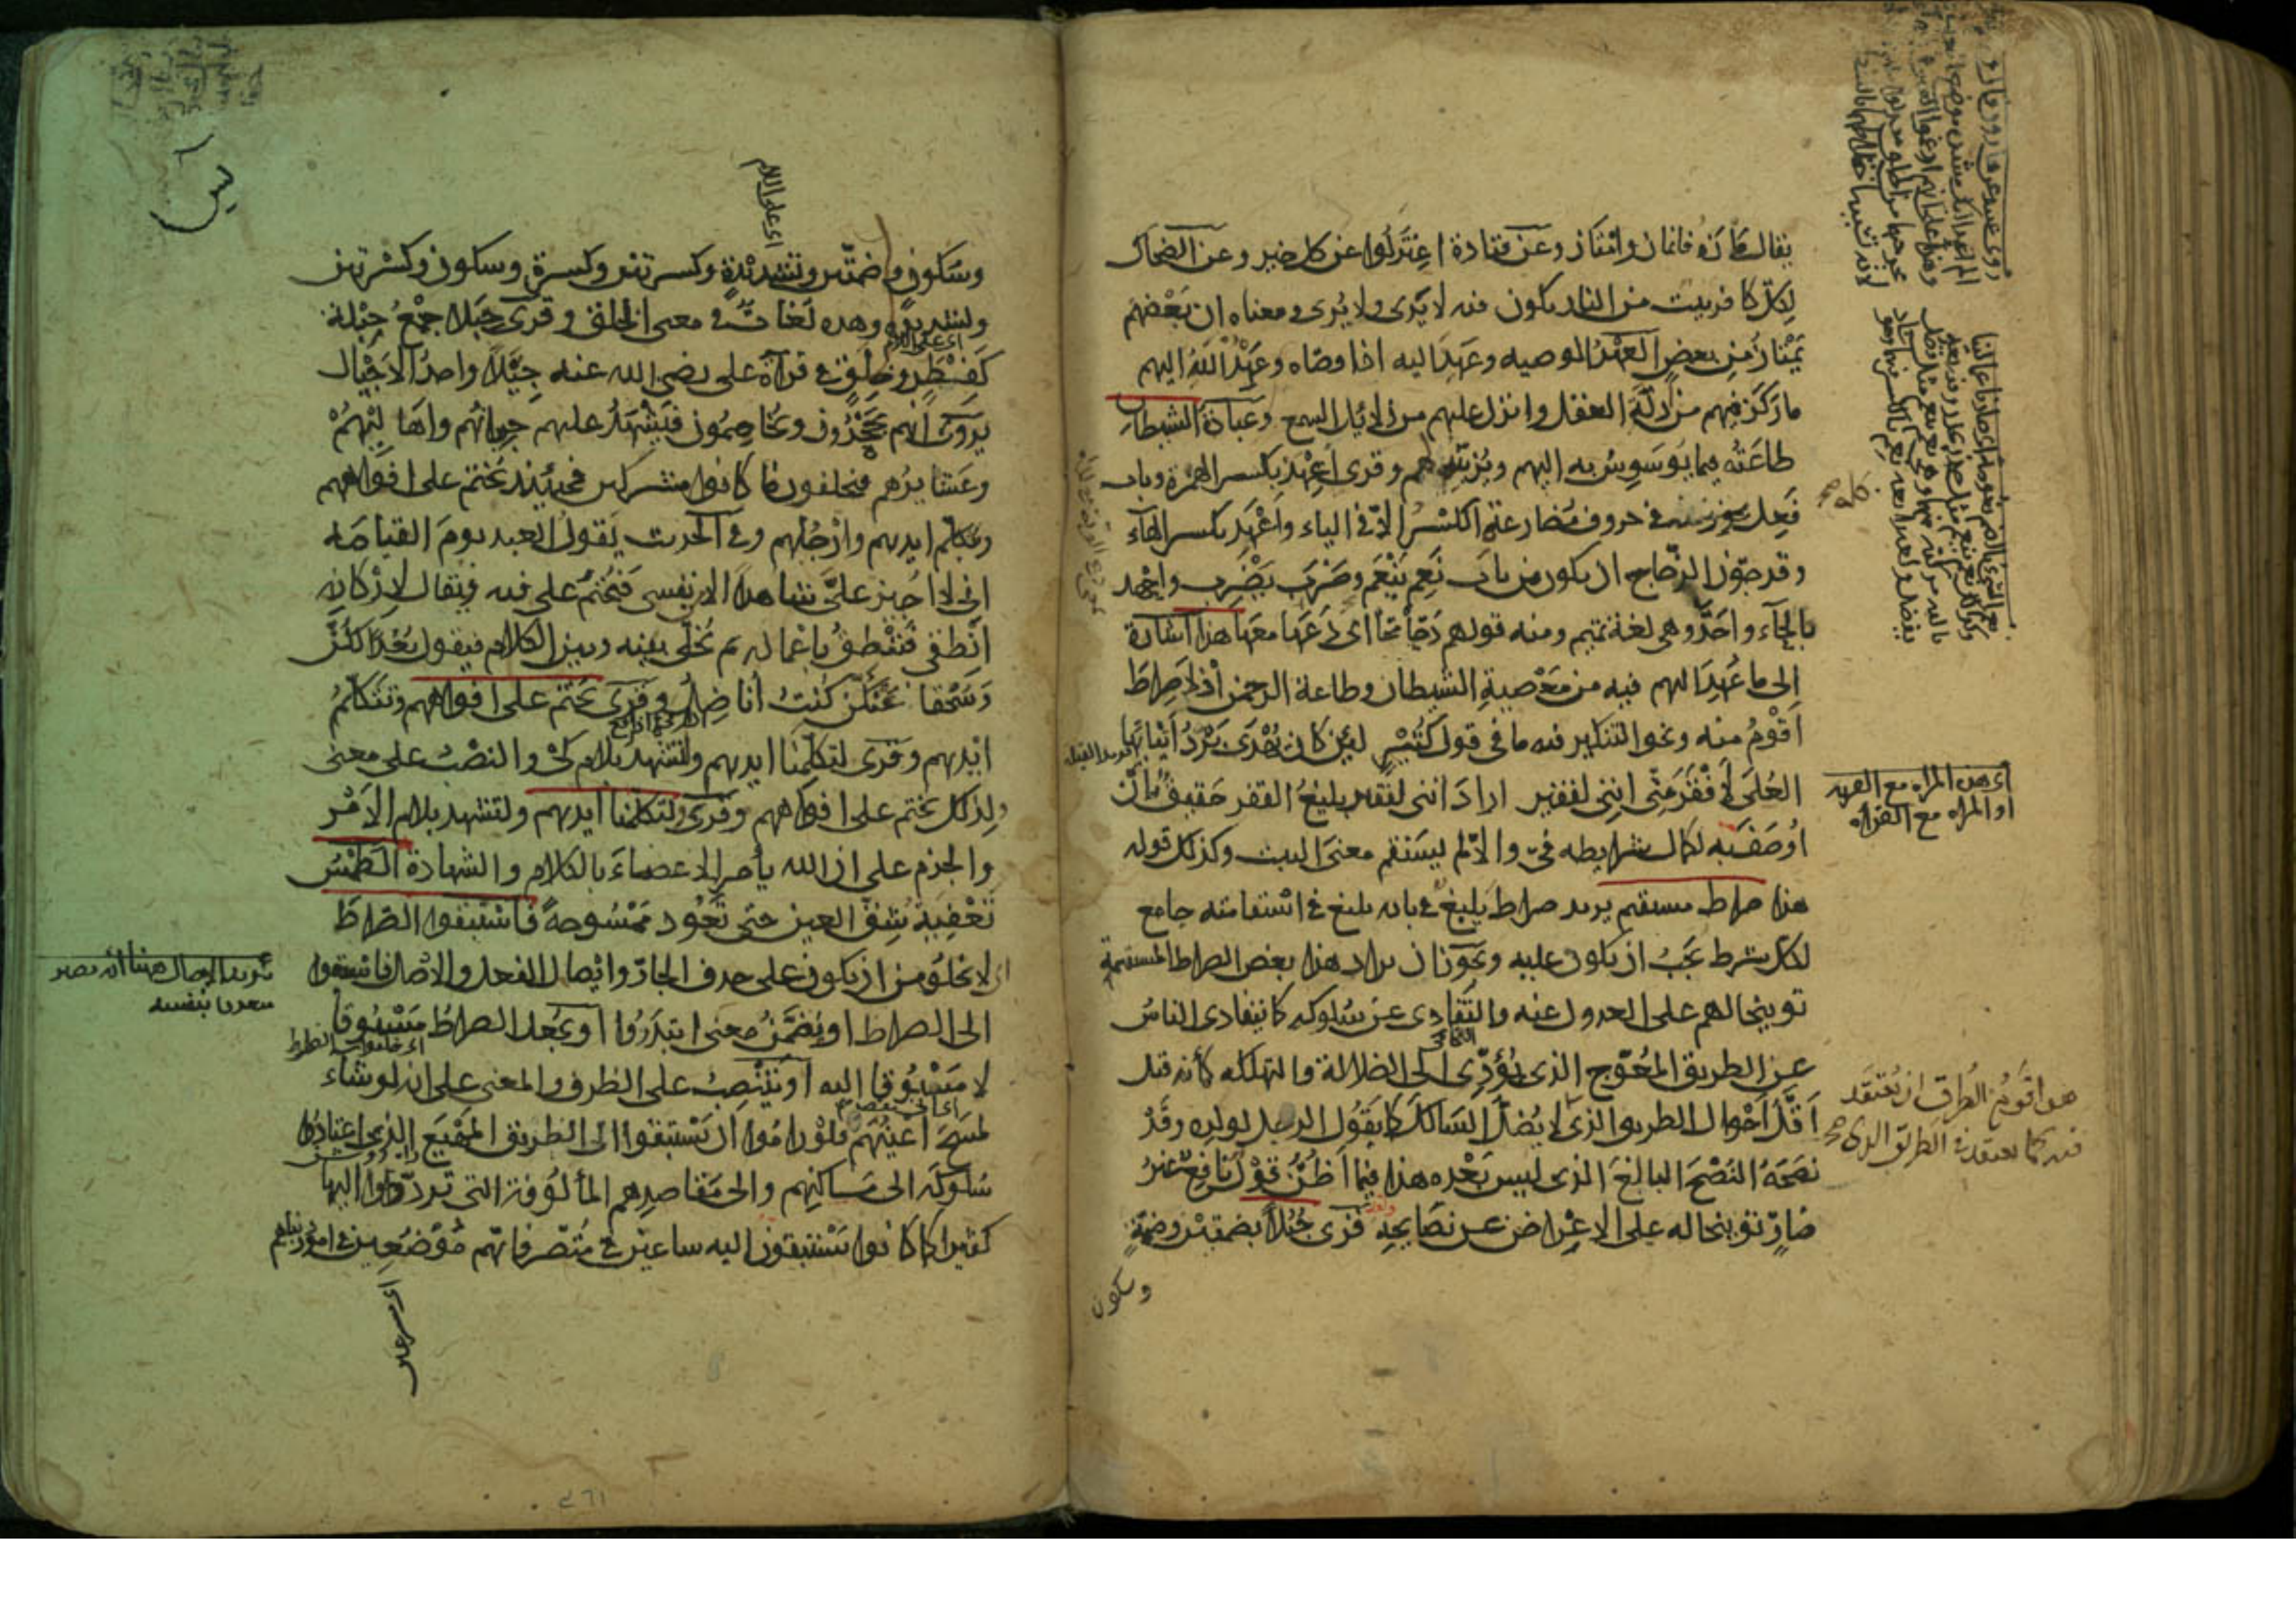 يقال مازه فانماز وامتاز وعن قتادة اعتزلوا عن كل خير وعن الضحاك
لكل كافر بيت من النار يكون فيه لا يَرى ولا يُرى ومعناه ان بعضهم
يمتاز من بعض العهد الوصيه وعهد اليه اذا وصّاه وعهد الله اليهم
ما ركز فيهم من ادلة العقل وانزل عليهم من دلايل السمع وعبادة الشيطان
طاعته فيما يوسوس به اليهم ويزينه لهم وقرى اِعهد بكسر الهمزة وباب
فعل كله في حروف مضارعته الكسر الا في الياء واعهِد بكسر الهاء
وقد جوّز الزجاج ان يكون من باب نعِم ينعِم وضرب يضرب واحهد
بالحاء واحّد وهي لغة تميم ومنه قولهم دحّا محّا اى دعها معها هذا اشارة
الى ما عهد اليهم فيه من معصية الشيطان وطاعة الرحمن اذ لا صراط
اقوم منه ونحو التنكير فيه ما في قول كثيّر لئن كان يهدى برد انيابها
العُلى لافقر منّي انني لفقير اراد انني لفقير بليغ الفقر حقيق بان
اوصف به لكمال شرايطه فىّ والا لم يستقم معنى البيت وكذلك قوله
هذا صراط مستقيم يريد صراط بليغ في بابه بليغ في استقامته جامع
لكل شرط يجب ان يكون عليه ويجوز ان يراد هذا بعض الصراط المستقيمة
توبيخا لهم على العدول عنه والتفادى عن سلوكه كما يتفادى الناس
عن الطريق المعوّج الذى يؤدّى الى الضلالة والتهلكه كأنه قيل
اقلّ احوال الطريق الذى لا يُضلّ السالك كما يقول الرجل لولده وقد
نصحه النصح البالغ الذى ليس بعده هذا فيما اظن قول نافع غير
ضارّ توبيخا له على الاعراض عن نصايحه قرى جُبُلا بضمتين وضمة
وسكون
اى هذه المراه مع القربه
او المراه مع القرابه
هو اقوم الطرق ان يُعتقد
فيه كما يعتقد في الطريق الذى صح
يس
وسكون وضمّتين وتشديدة وكسرتين وكسرة وسكون وكسرتين
وتشديدة وهذه لغات في معنى الخلق وقرى جِبَلا جمع جِبْلة
كفِطَر وخِلَق في قرآة على رضى الله عنه جِيْلًا واحد الاجيال
يروى انهم يجحدون ويخاصمون فيشهد عليهم جيرانهم واهاليهم
وعشايرهم فيحلفون ما كانوا مشركين فحينئذ يختم على افواههم
وتكلّم ايديهم وارجلهم وفي الحديث يقول العبد يوم القيامه
انى لا اجيز علىّ شاهدا الا من نفسى فيُختم على فيه ويقال لاركانه
انطقى فتنطق باعماله ثم يُخلّى بينه وبين الكلام فيقول بُعدا لكنّ
وسحقا فعنكنّ كنت اناضل وقرى يختم على افواههم وتتكلم
ايديهم وقرى لتكلّمنا ايديهم ولتشهد بلام كى والنصب على معنى
ولذلك نختم على افواههم وقرى ولتكلّمنا ايديهم ولتشهد بلام الامر
والجزم على ان الله يأمر الاعضاء بالكلام والشهادة الطمس
تعفية شق العين حتى تعود ممسوحةً فاستبقوا الصراط
لا يخلو من ان يكون على حذف الجارّ وايصال الفعل والاصل فاستبقوا
الى الصراط او يضمّن معنى ابتدروا او يجعل الصراط مسبوقا
لا مسبوقا اليه او ينتصب على الظرف والمعنى على انه لو شاء
لمسح اعينهم فلو راموا ان يستبقوا الى الطريق المهيع الذى اعتادوا
سلوكه الى مساكنهم والى مقاصدهم المألوفة التى تردّدوا اليها
كثيرا كما كانوا يستبقون اليه ساعين في متصرفاتهم موضعين في امور دنياهم
يريد بالايصال هنا انه يصير
متعديا بنفسه